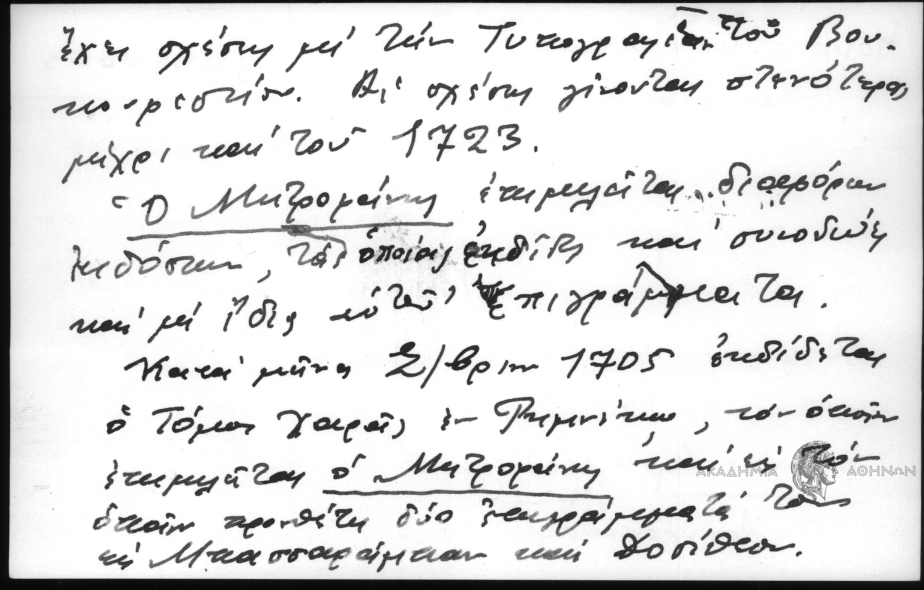 ἔχει σχέσιν μέ τήν Τυπογραφίαν τοῦ Βου-
κουρεστίου. Αἱ σχέσεις γίνονται στενότεραι
μέχρι καί τοῦ 1723.
Ὁ Μητροφάνης ἐπιμελεῖται διαφόρων
ἐκδόσεων, τάς ὁποίας ἐκδίδει καί συνοδεύει
καί μέ ἴδια αὐτοῦ ἐπιγράμματα.
Κατά μῆνα Σ/βριον 1705 ἐκδίδεται
ὁ Τόμος Χαρᾶς ἐν Ριμνίκῳ, τόν ὁποῖον
ἐπιμελεῖται ὁ Μητροφάνης καί εἰς τόν
ὁποῖον προσθέτει δύο ἐπιγράμματά του
εἰς Μπασσαράμπαν καί Δοσίθεον.
ΑΚΑΔΗΜΙΑ ΑΘΗΝΩΝ